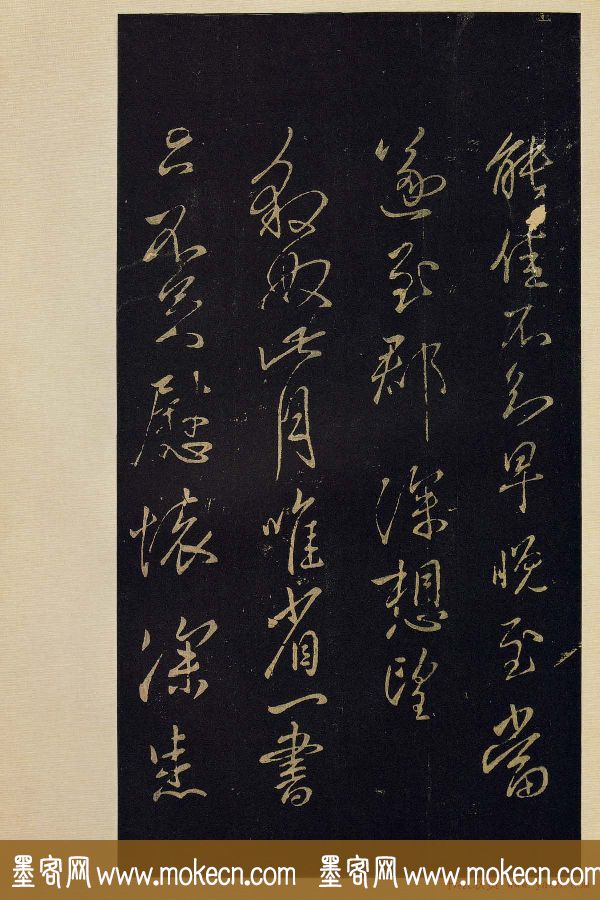 能佳不知早晚至當
遂至郡深想望
此月唯省一書
亦不足慰懷深
墨客网 www.mokecn.com 墨客网 www.mokecn.com